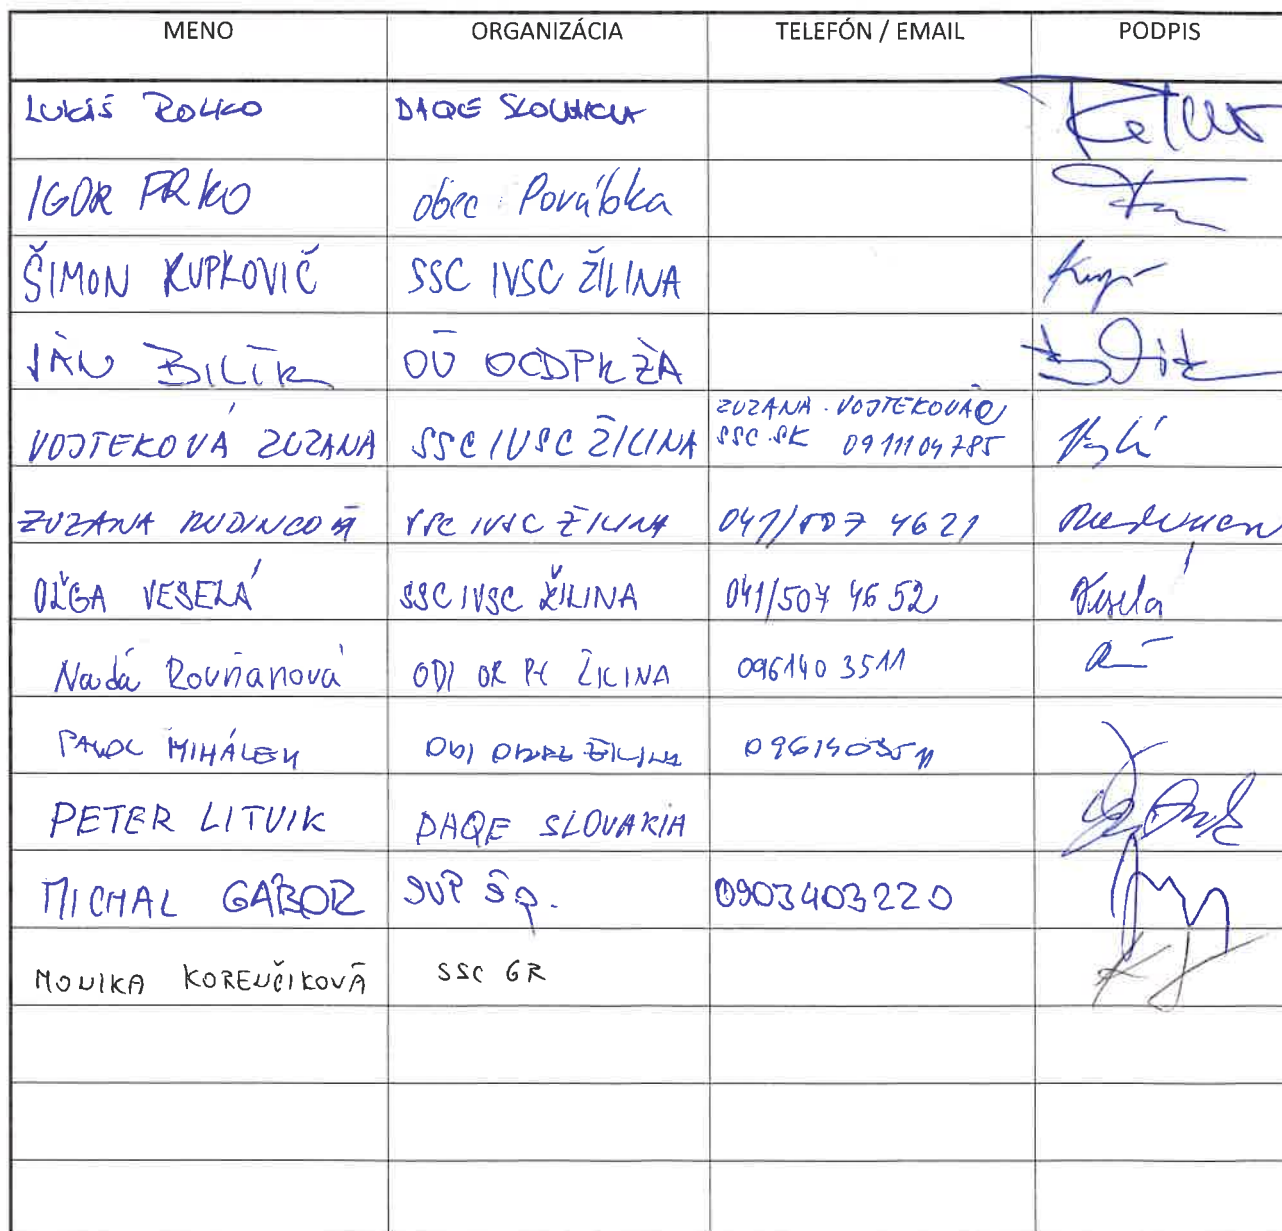 MENO ORGANIZÁCIA TELEFÓN / EMAIL PODPIS
LUKÁŠ ROLKO DAQE SLOVAKIA
IGOR FRKO obec Porúbka
ŠIMON KUPKOVIČ SSC IVSC ŽILINA
JÁN BILÍK OÚ OCDPK ZA
ZUZANA.VOJTEKOVÁ@
VOJTEKOVÁ ZUZANA SSC IVSC ŽILINA SSC.SK 0911104785
ZUZANA SSC IVSC ŽILINA 041/507 4621
OĽGA VESELÁ SSC IVSC ŽILINA 041/507 46 52 Veselá
Nadá Rovňanová ODI OR PZ ŽILINA 096140 3511
PAVOL MIHÁLEK ODI ORPZ ŽILINA 0961403511
PETER LITVIK DAQE SLOVAKIA
MICHAL GABOR SVP ŠP. 0903403220
MONIKA KORENČIKOVÁ SSC GR